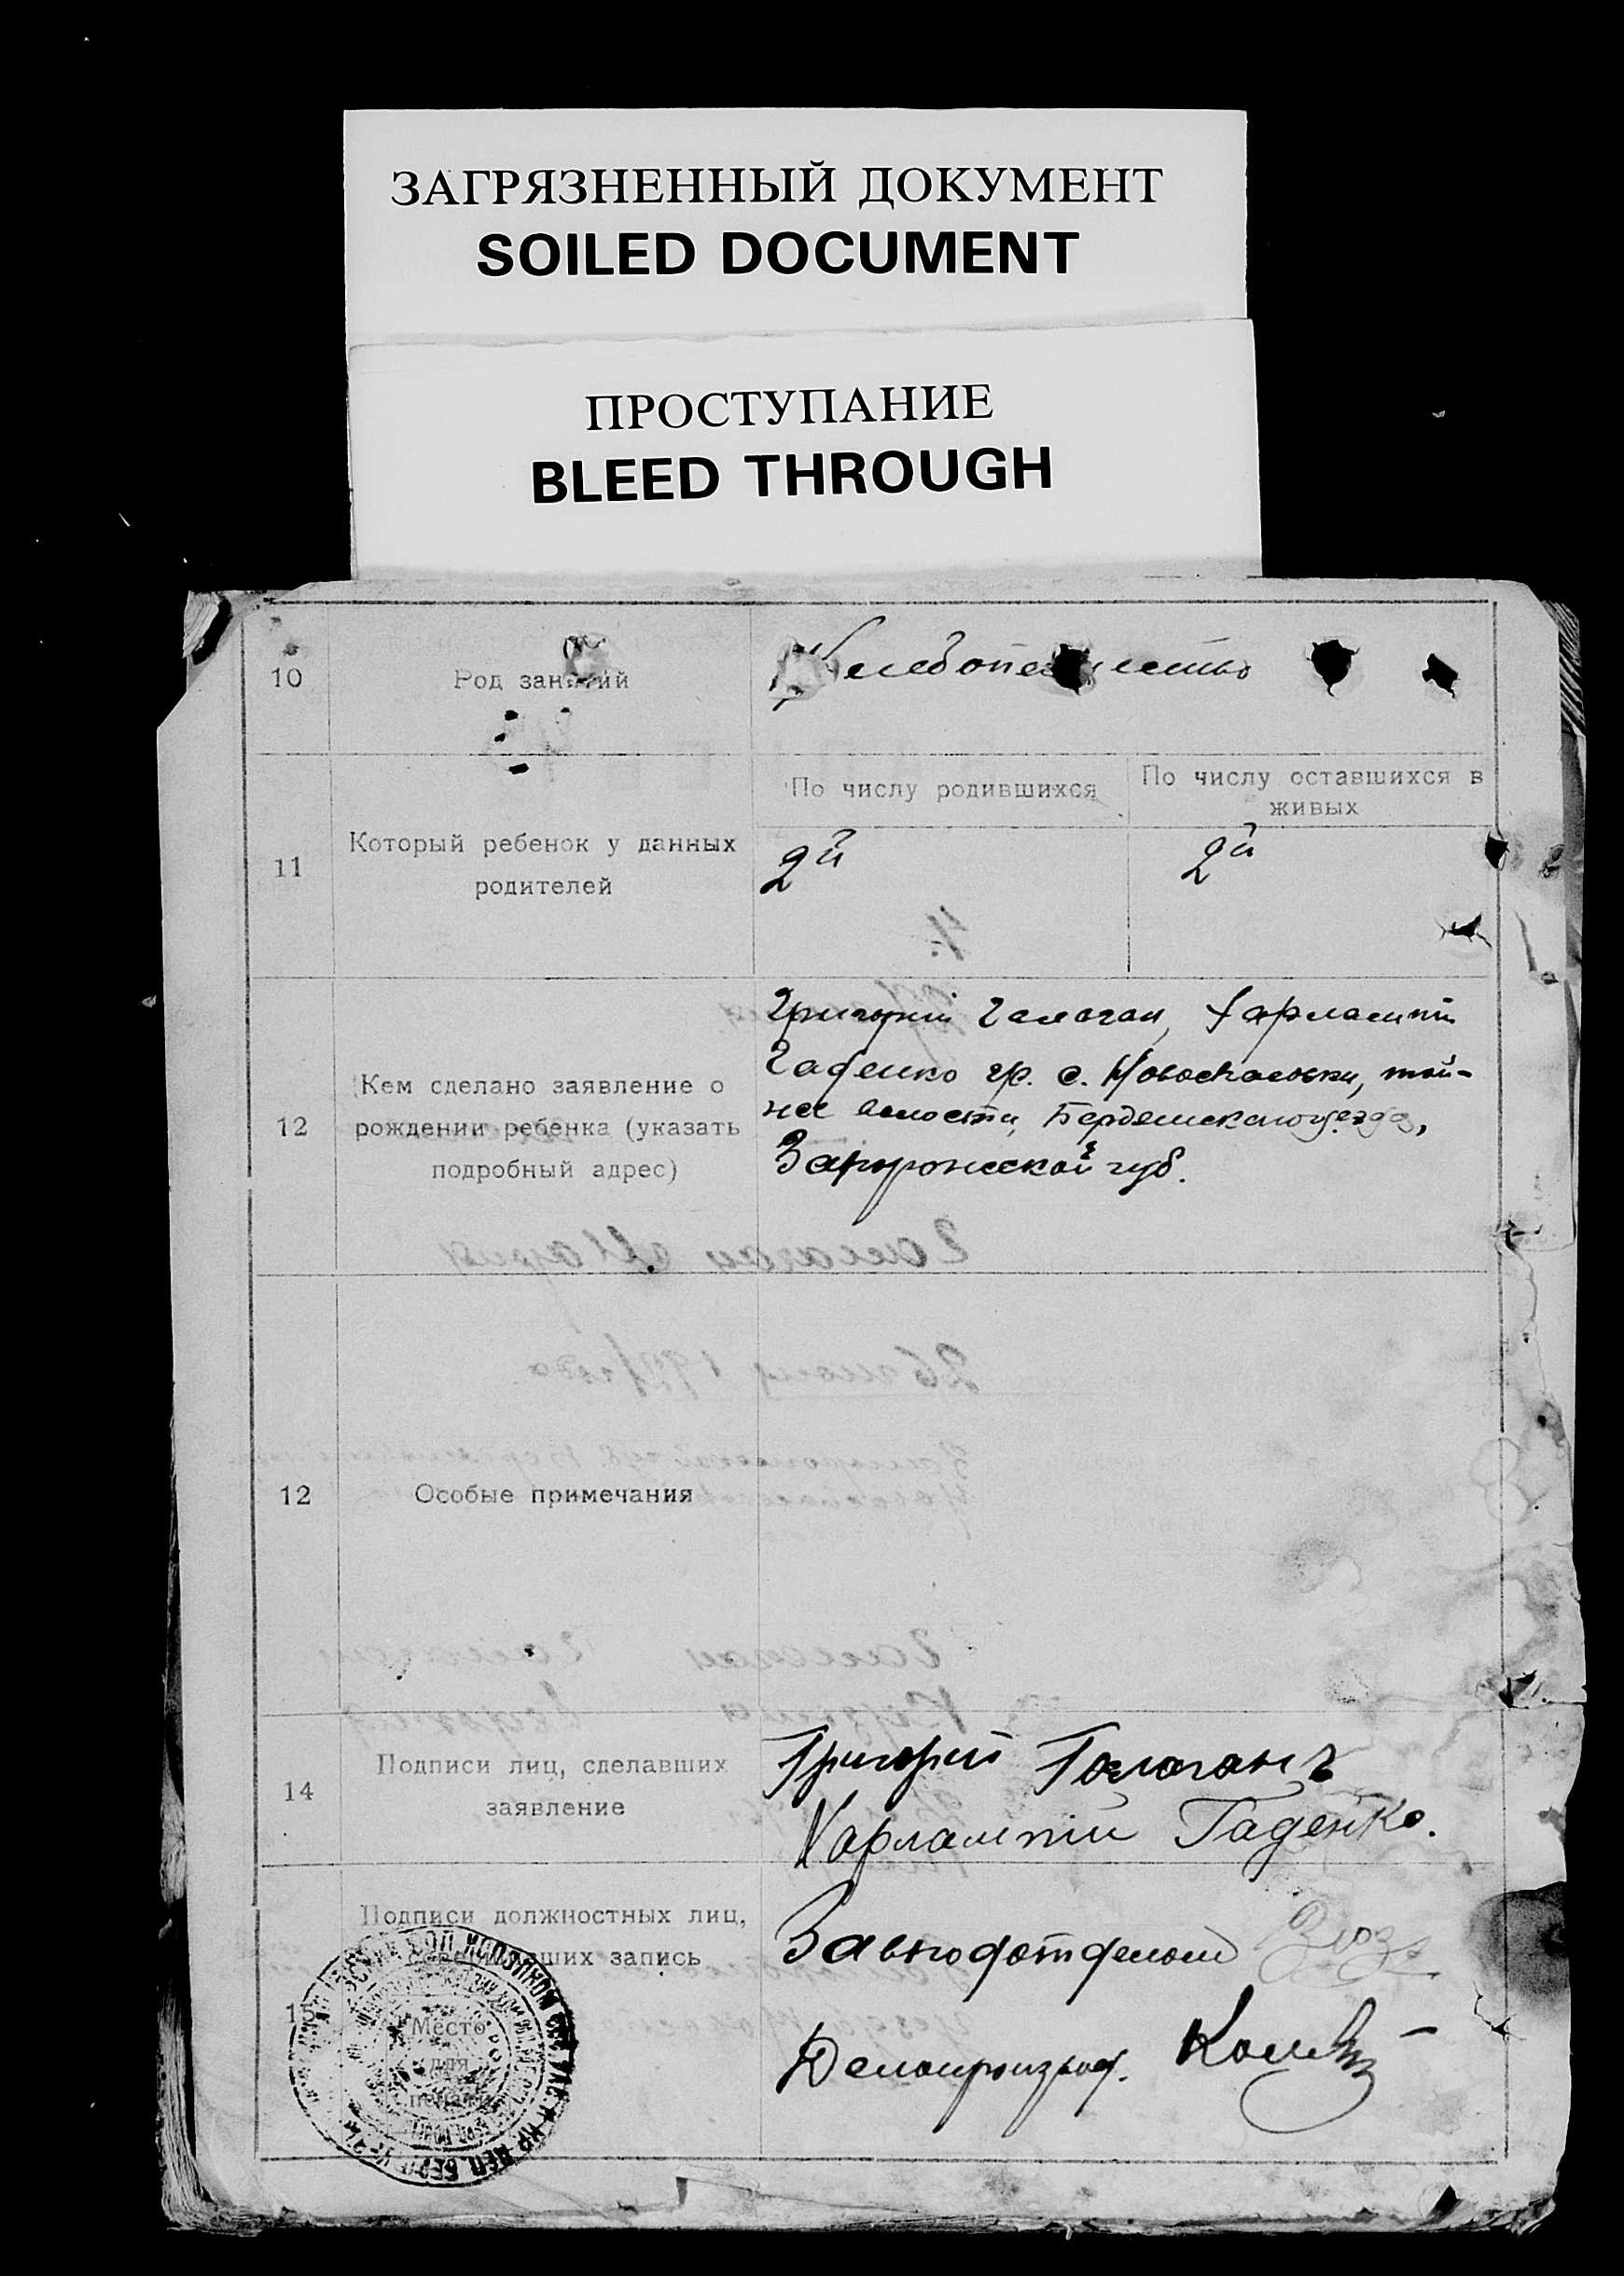 ЗАГРЯЗНЕННЫЙ ДОКУМЕНТ
SOILED DOCUMENT
ПРОСТУПАНИЕ
BLEED THROUGH
10
Род занятий
11
Который ребенок у данных
родителей
По числу родившихся
По числу оставшихся в
живых
2й
2й
12
Кем сделано заявление о
рождении ребенка (указать
подробный адрес)
Григорий Галаган, Харлампий
Гаденко гр. с. Новоспасовки, той-
же волости, Бердянского уезда,
Запорожской губ.
12
Особые примечания
14
Подписи лиц, сделавших
заявление
Григорий Галаганъ
Харлампий Гаденко.
15
Подписи должностных лиц,
запись
Место
для
печати
Завподотделом
Делопроизвод.